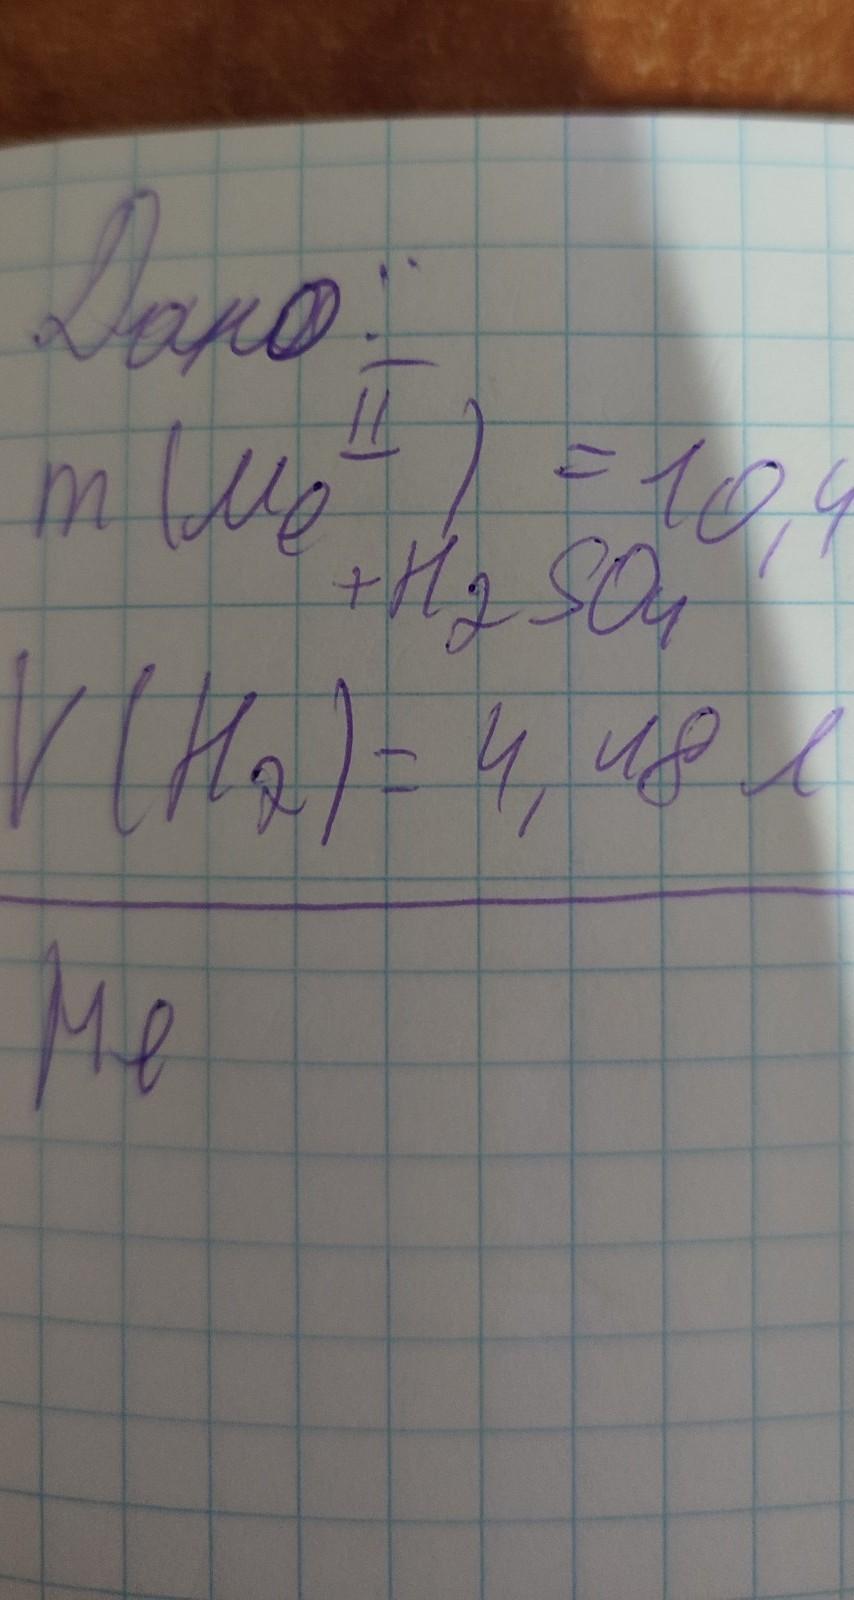 Дано:
m (Me^II) = 10,4
+H2SO4
V(H2) = 4,48 л
Me